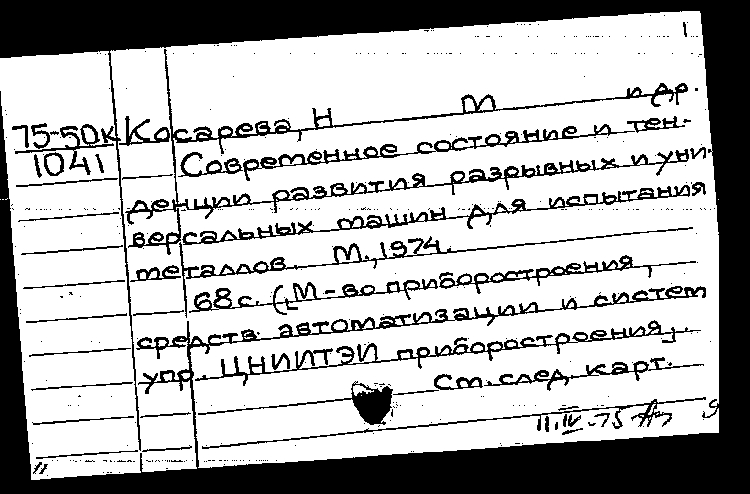 1
75-50к Косарева, Н М и др.
1041 Современное состояние и тен-
денции развития разрывных и уни-
версальных машин для испытания
металлов. М., 1974.
68 с. (М-во приборостроения,
средств автоматизации и систем
упр. ЦНИИТЭИ приборостроения).
См. след. карт.
11.IV-75